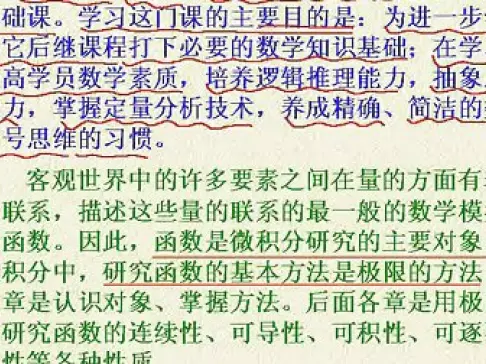 础课。学习这门课的主要目的是：为进一步
它后继课程打下必要的数学知识基础；在学
高学员数学素质，培养逻辑推理能力，抽象
力，掌握定量分析技术，养成精确、简洁的
号思维的习惯。
客观世界中的许多要素之间在量的方面有
联系，描述这些量的联系的最一般的数学模
函数。因此，函数是微积分研究的主要对象
积分中，研究函数的基本方法是极限的方法
章是认识对象、掌握方法。后面各章是用极
研究函数的连续性、可导性、可积性、可逐
性等各种性质